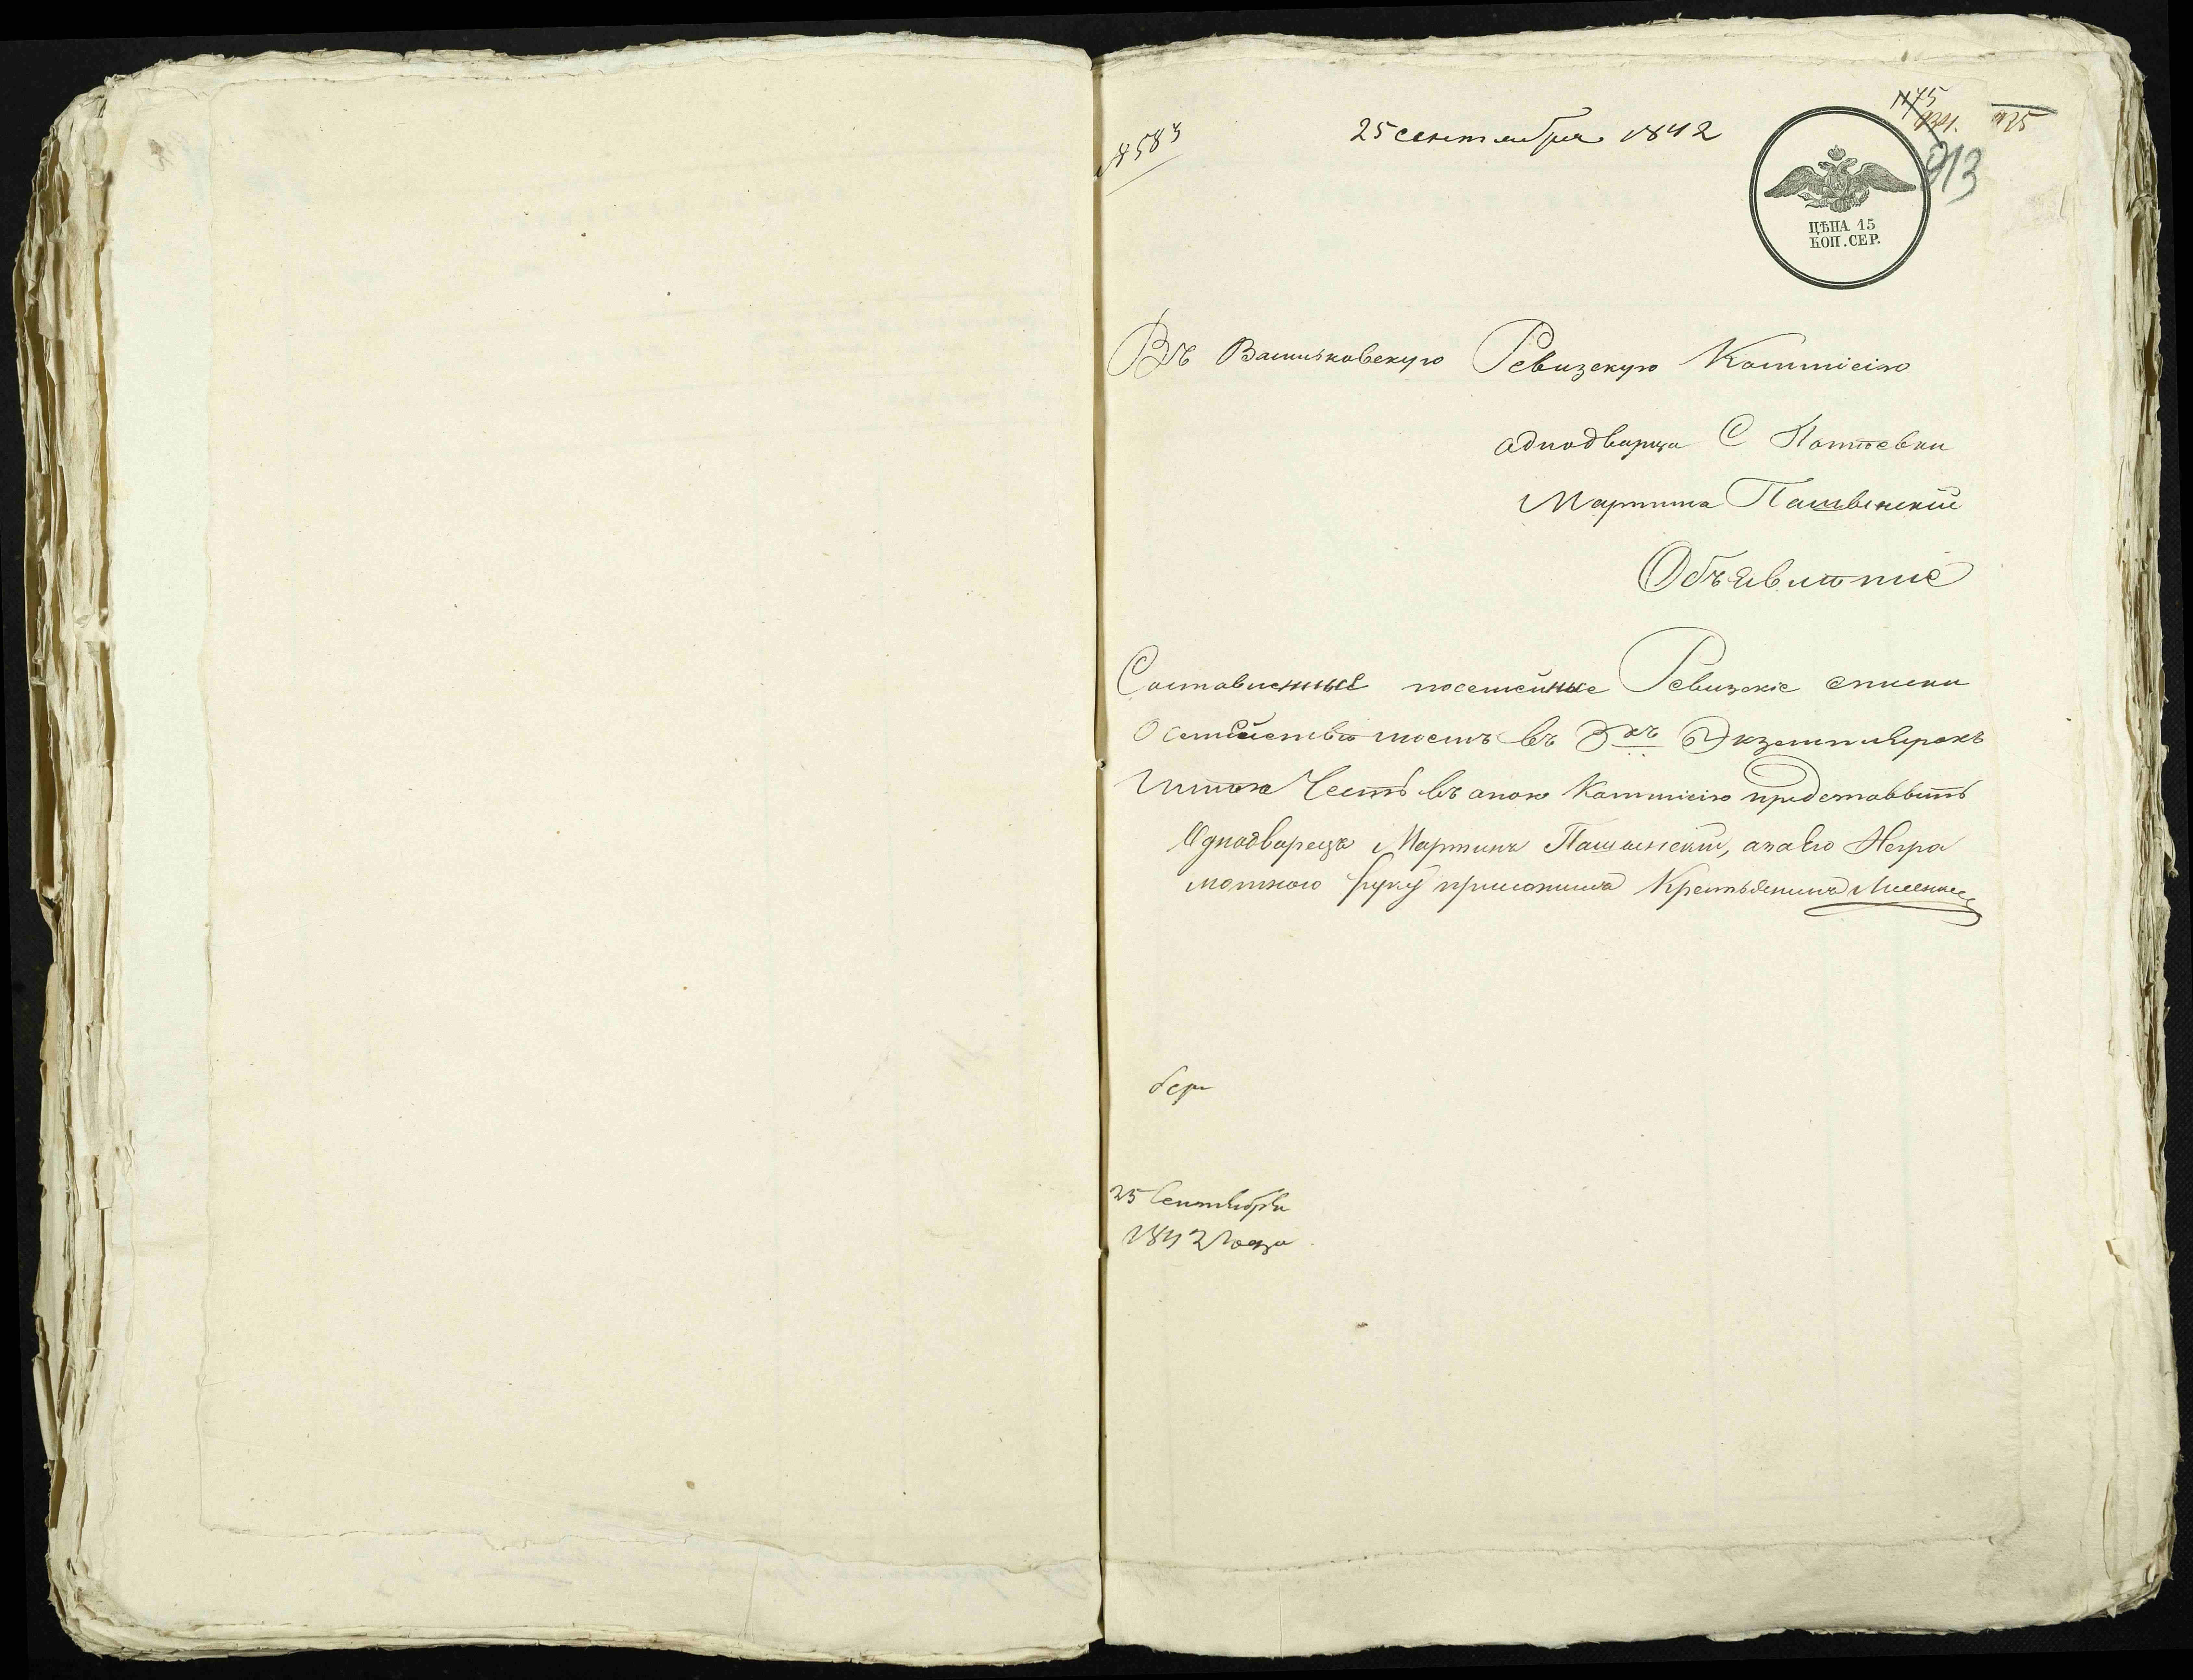 № 583
25 сентября 1842
1175
975
913
ЦѢНА 15
КОП. СЕР.
Въ Васильковскую Ревизскую Коммісію
однодворца С
Мартина
Объявленіе
Составленные посемейные Ревизскіе списки
О семействѣ моемъ въ 2хъ Экземплярахъ
Имѣю Честь въ оною Коммисію представить
Однодворецъ Мартинъ Пашинскій, а за Его Негра
мотного руку приложилъ Крестьянинъ
25 Сентября
1842 года